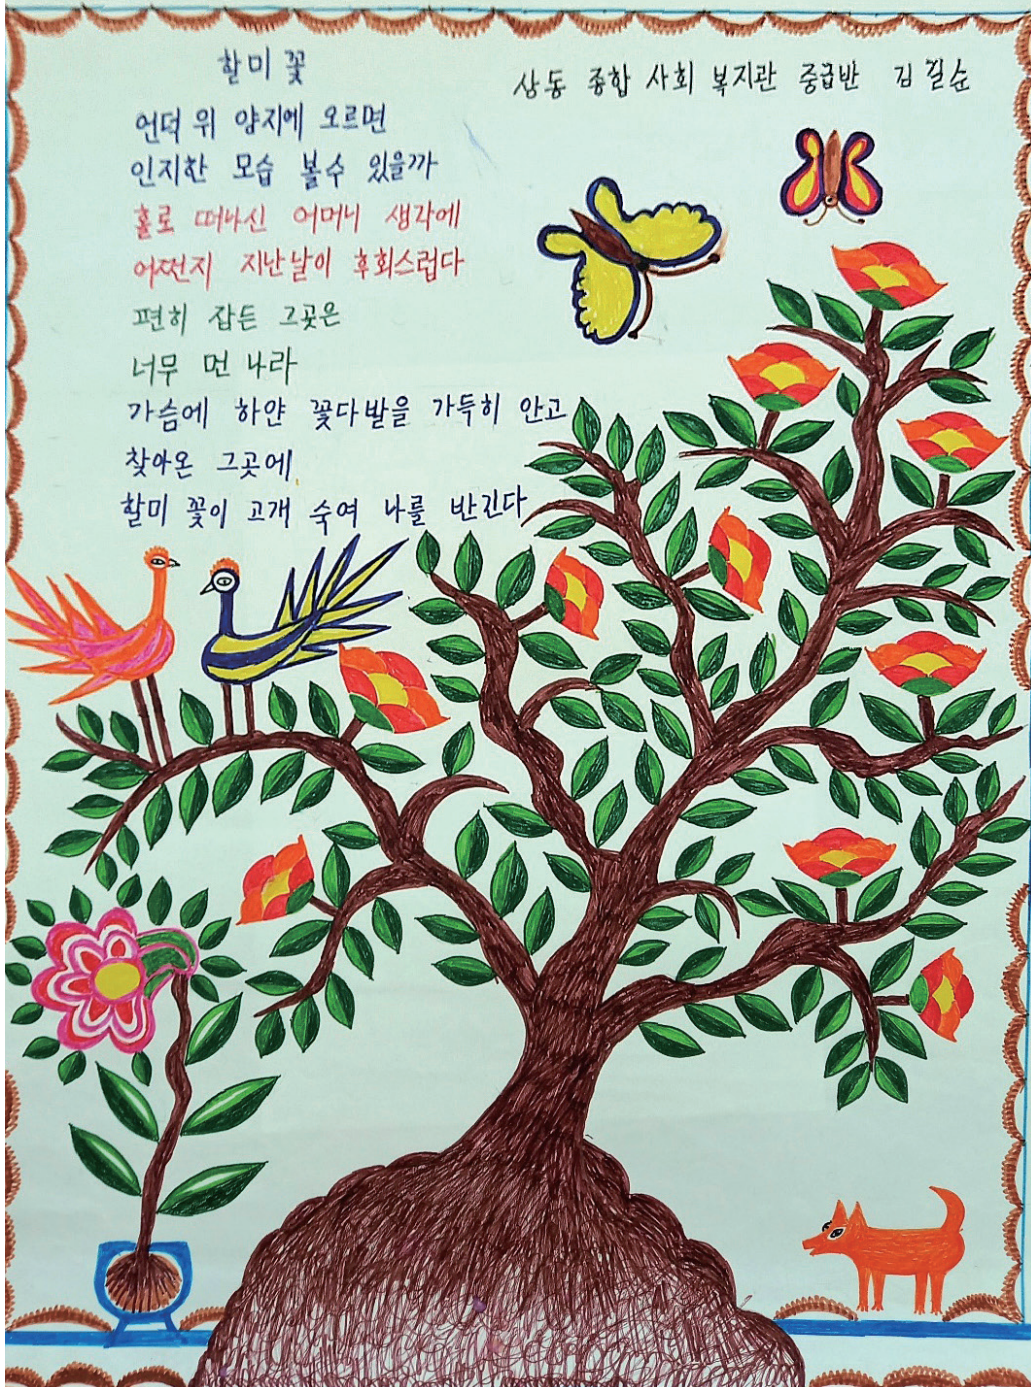 할미 꽃
상동 종합 사회 복지관 중급반 김길순
언덕 위 양지에 오르면
인자한 모습 볼수 있을까
홀로 떠나신 어머니 생각에
어쩐지 지난날이 후회스럽다
편히 잠든 그곳은
너무 먼 나라
가슴에 하얀 꽃다발을 가득히 안고
찾아온 그곳에
할미 꽃이 고개 숙여 나를 반긴다